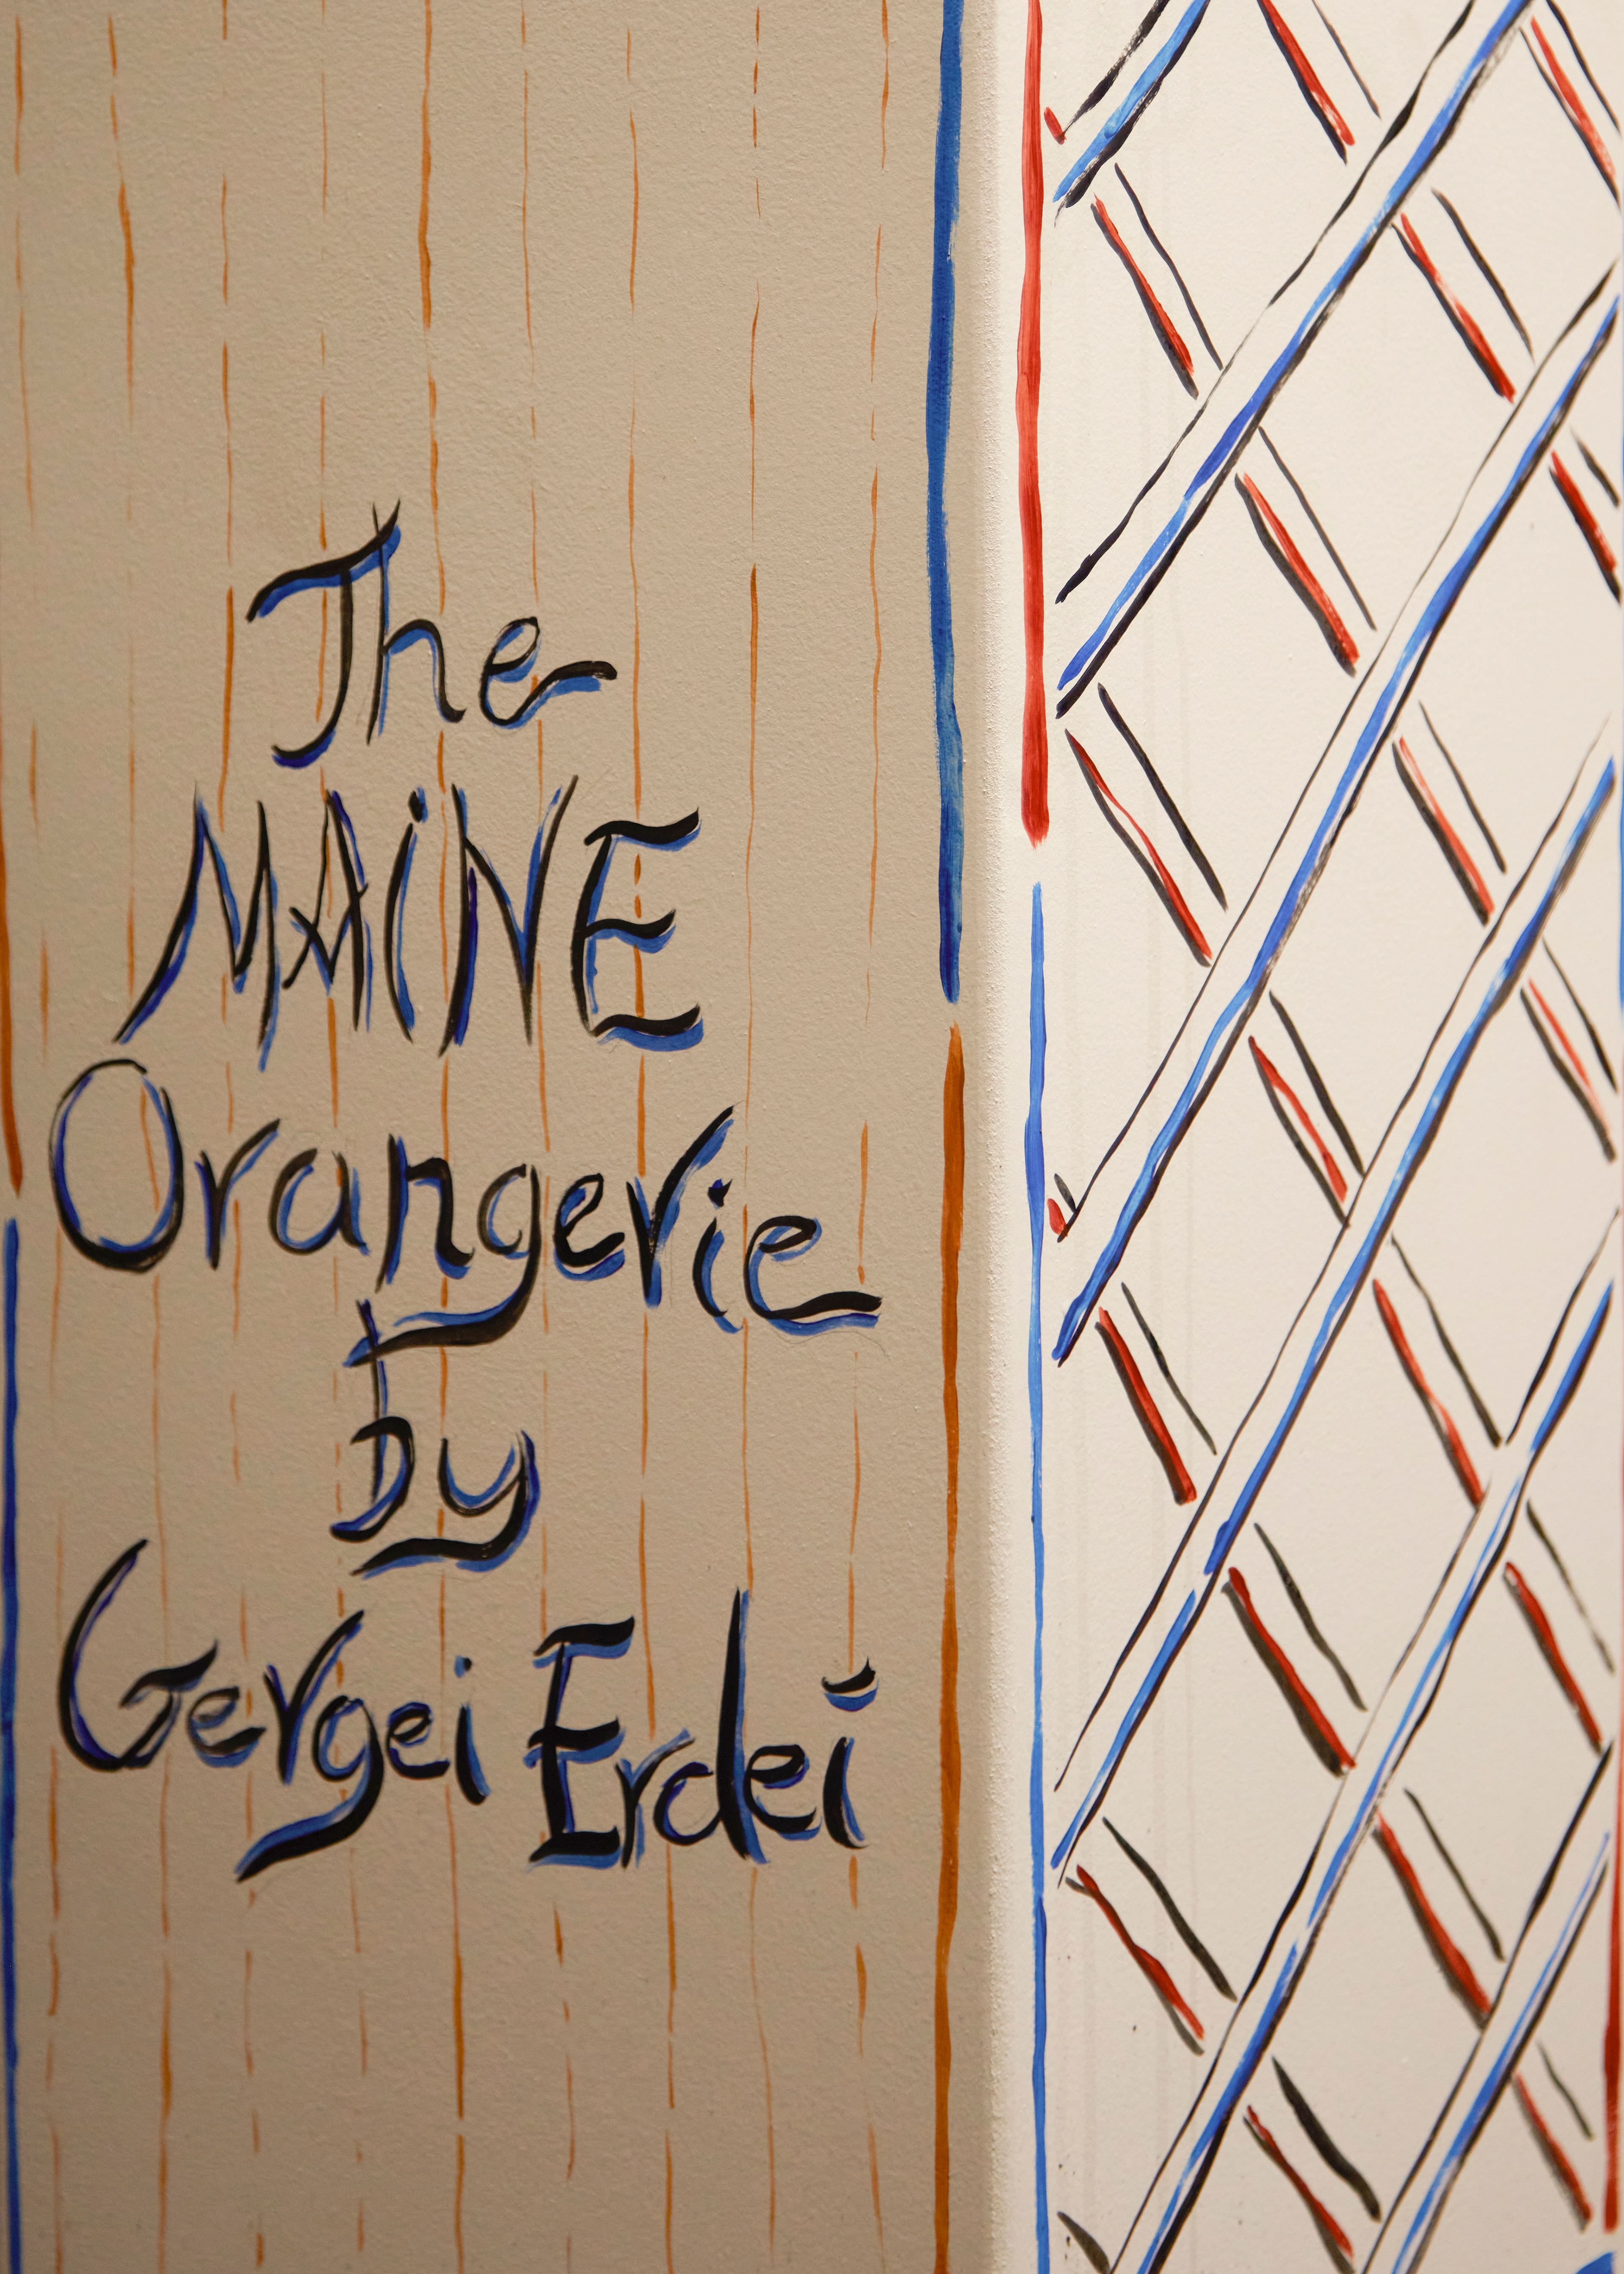 The
MAiNE
Orangerie
by
Gergei Erdei